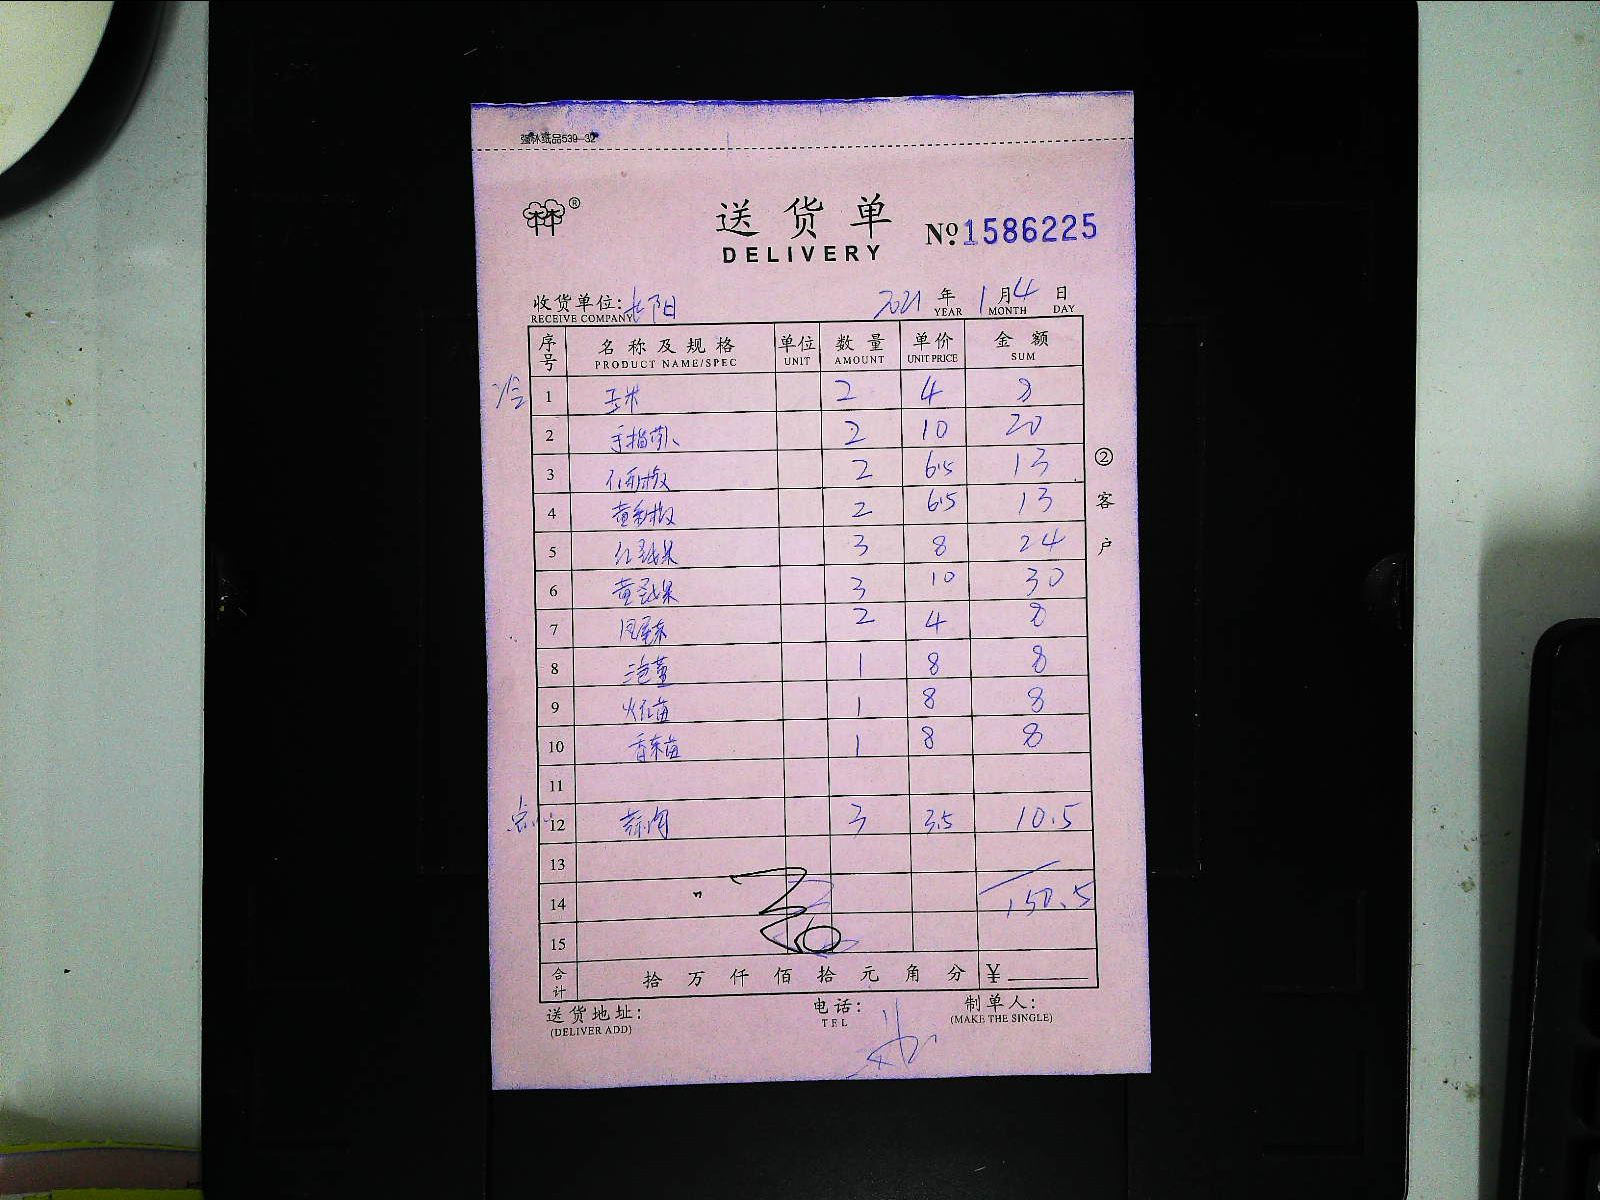 强林纸品539-32
林®
送货单
DELIVERY
№1586225
收货单位:长阳 2021年1月4日
RECEIVE COMPANY YEAR MONTH DAY
序号 名称及规格 单位 数量 单价 金额
PRODUCT NAME/SPEC UNIT AMOUNT UNIT PRICE SUM
冷 1 玉米 2 4 8
2 手指萝卜 2 10 20
3 红彩椒 2 6.5 13
4 黄彩椒 2 6.5 13
5 红圣女果 3 8 24
6 黄圣女果 3 10 30
7 2 4 8
8 1 8 8
9 1 8 8
10 1 8 8
11
点心 12 蒜肉 3 3.5 10.5
13
14 150.5
15
合计 拾万仟佰拾元角分 ¥
送货地址: 电话: 制单人:
(DELIVER ADD) TEL (MAKE THE SINGLE)
②客户